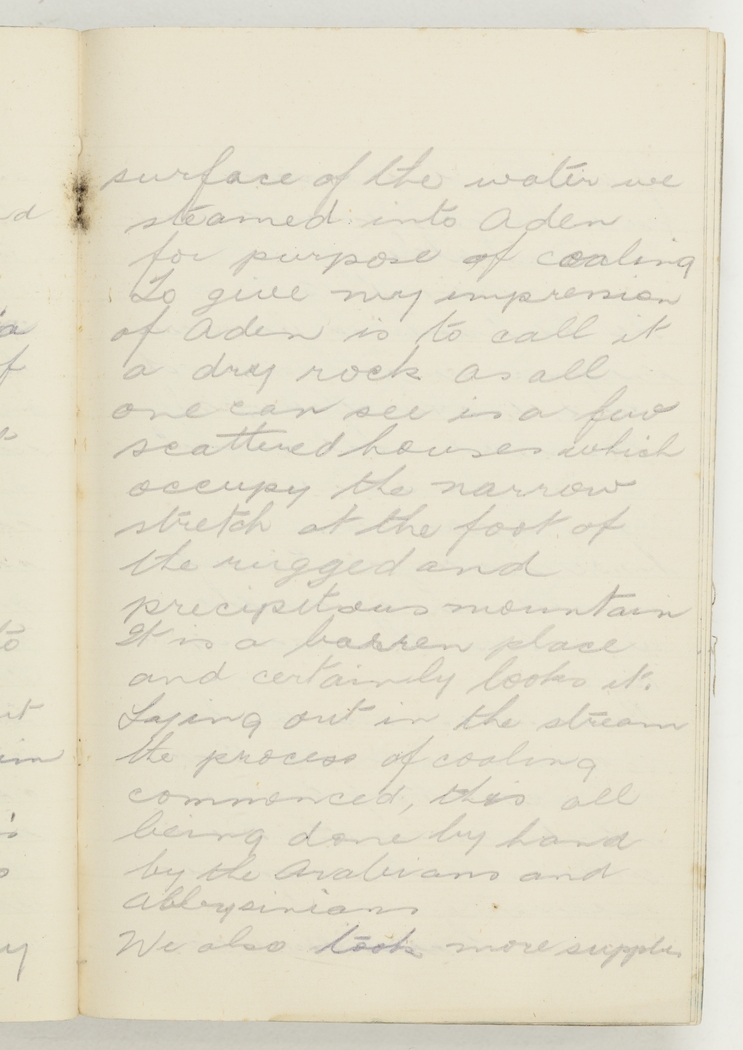 surface of the water we
steamed into Aden
for purpose of coaling
To give my impression
of Aden is to call it
a dry rock as all
one can see is a few
scattered houses which
occupy the narrow
stretch at the foot of
the rugged and
precipitous mountain
It is a barren place
and certainly looks it.
Laying out in the stream
the process of coaling
commenced, this all
being done by hand
by the Arabians and
Abbysinians
We also took more supplies